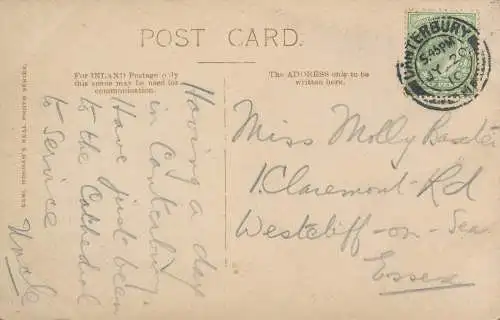 POST CARD.
For INLAND Postage only
this space may be used for
communication.
The ADDRESS only to be
written here.
CANTERBURY
5.45PM
10
Having a day
in Canterbury.
Have just been
to the Cathedral
to Service
Uncle
Miss Molly Baxter
1. Claremont Rd
Westcliff-on-Sea
Essex